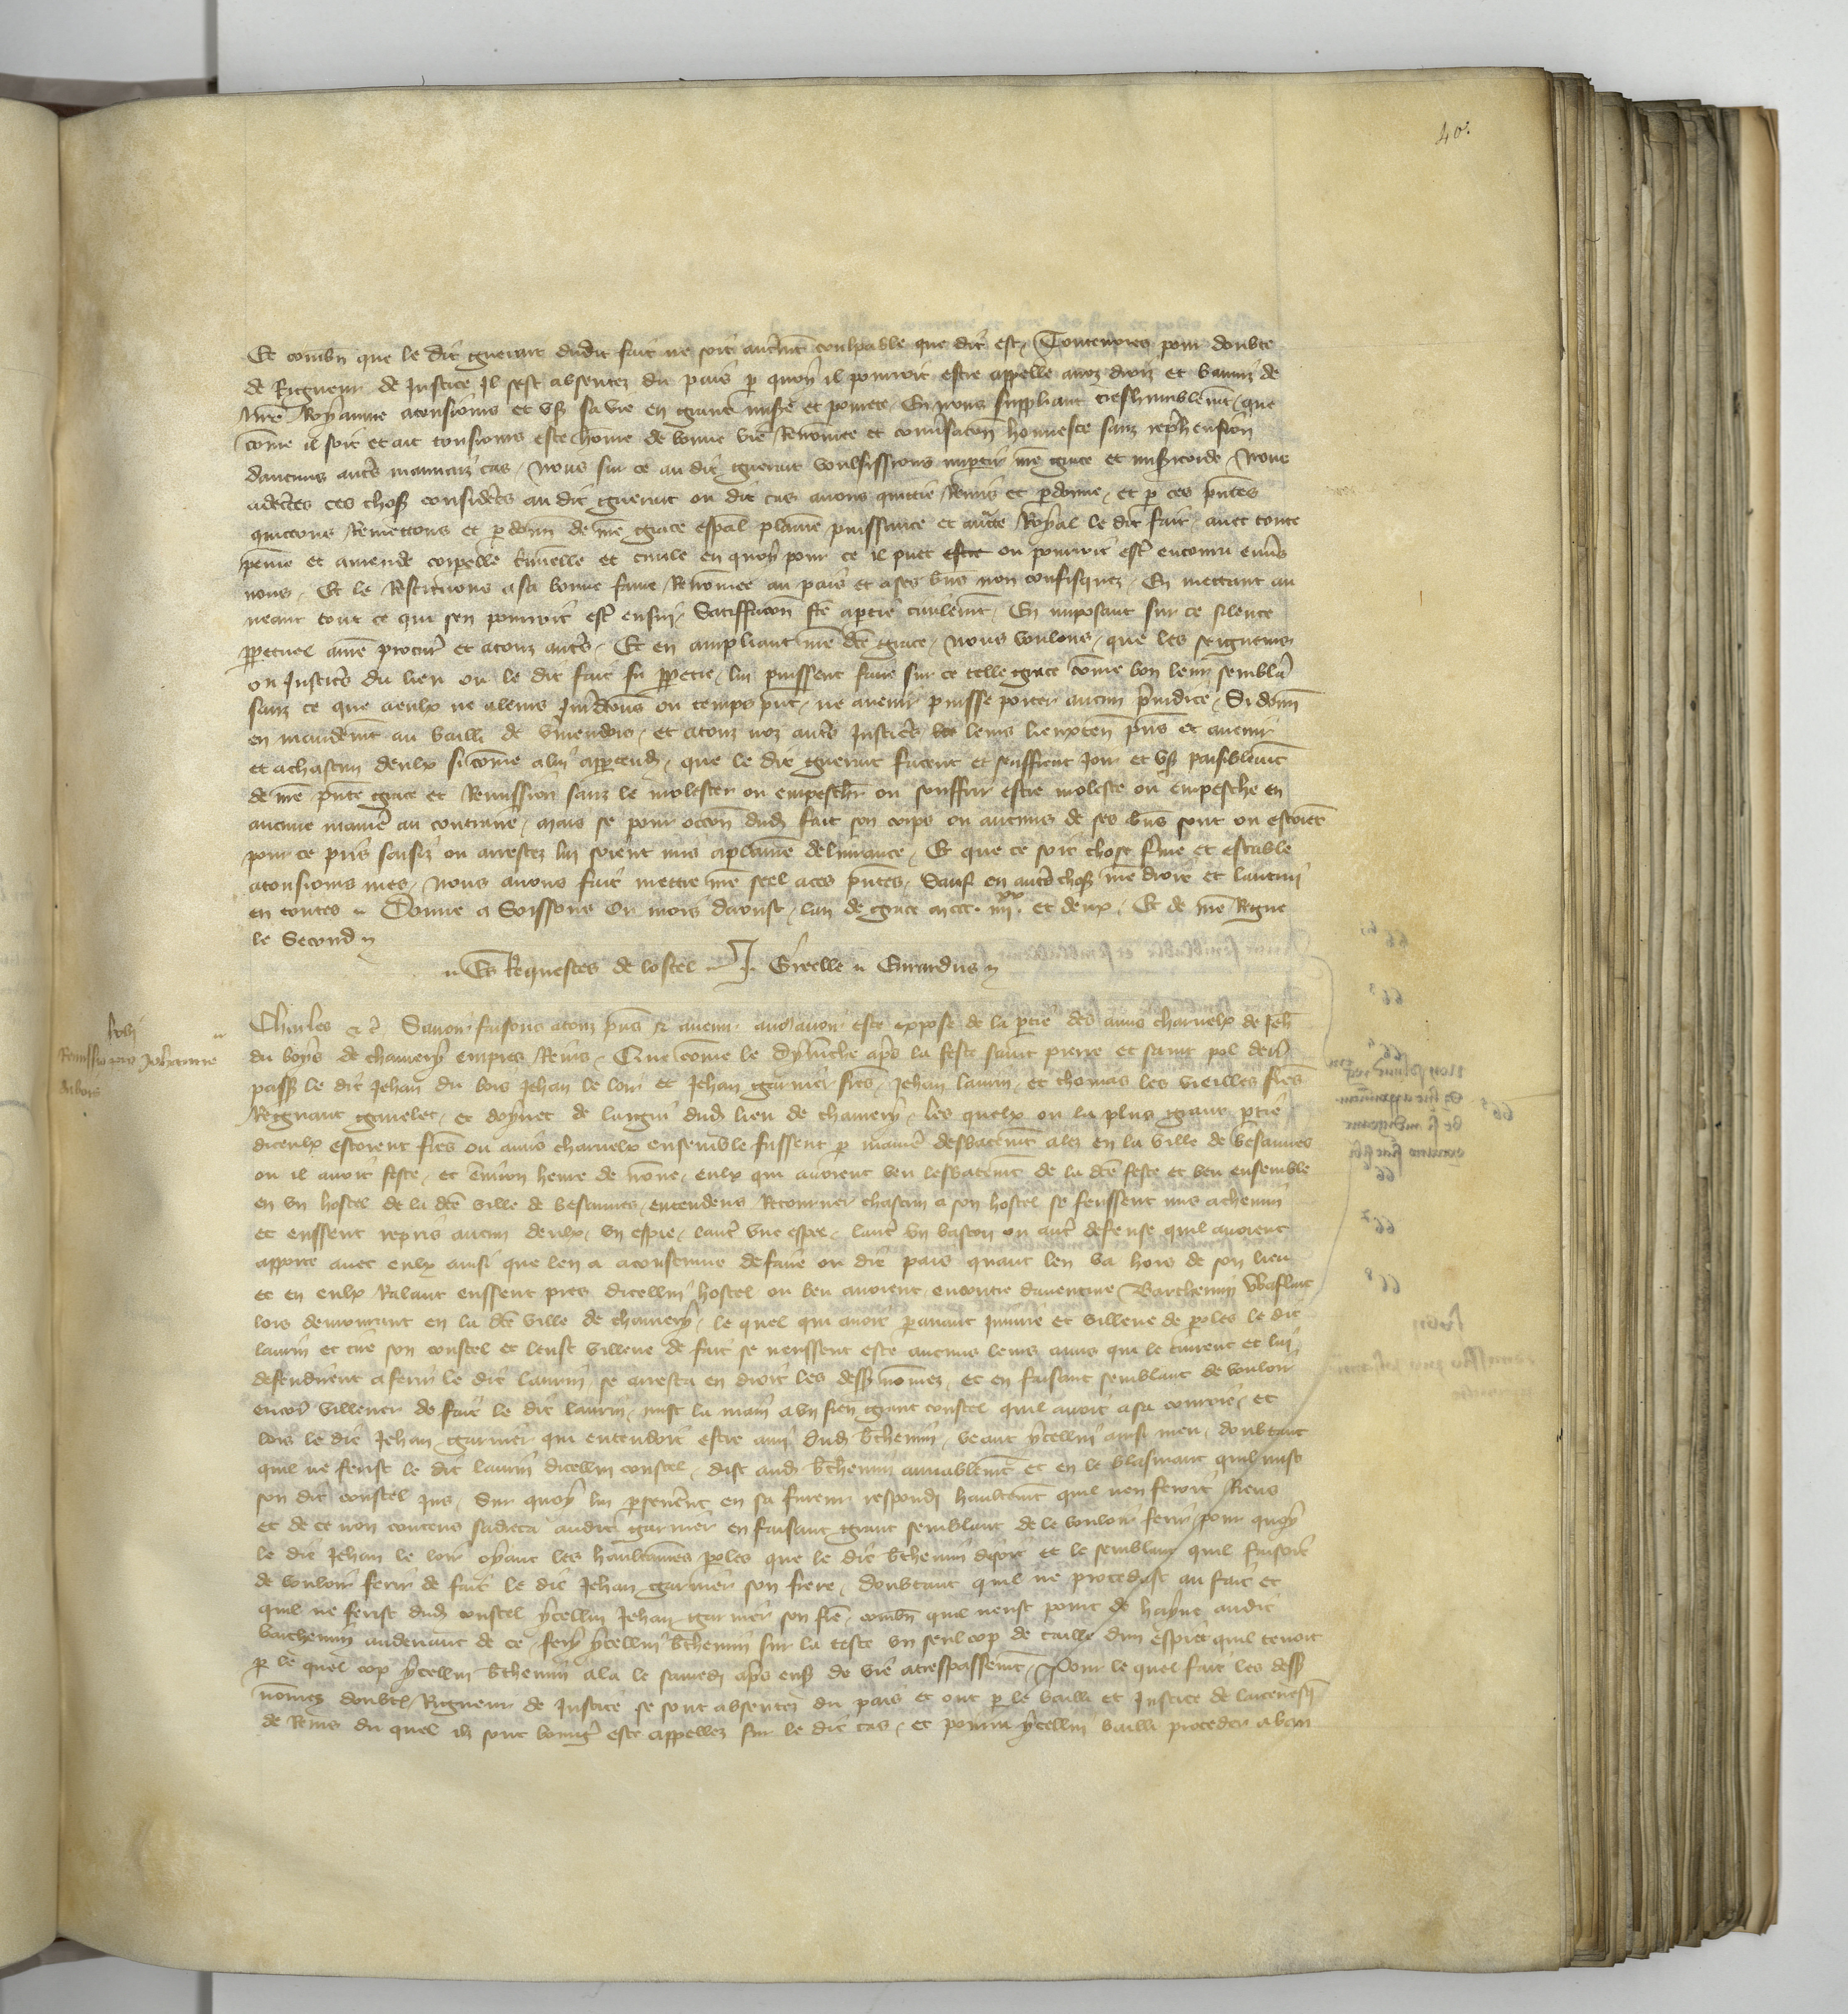 40.
Et combn que le dit guerart dudit fait ne soit autremt coulpable que dit est, Toutevoies pour doubte
de Rigueur de Justice Il sest absentez du pais p quoy il pourroit estre appelle a noz droiz et banniz de
nre Royaume a tousiours et us sa vie en grant misere et povrete, En nous suppliant treshumblemt, que
come il soit et ait tousiours este home de bonne vie Renomee et conversacon honneste sanz reprehension
daucuns autres mauvaiz cas, Nous sur ce au dit guerart voulsissions impartir nre grace et misericorde, Nous
adecertes ces choses considerees au dit guerart ou dit cas avons quittie Remis et pardonne, et p ces pntes
quittons Remettons et pdonn de nre grace espal plaine puissance et aucte Royal le dit fait, avec toute
peine et amende corpelle criminelle et civile en quoy pour ce il puet estre ou pourroit estre encouru envers
nous, Et le Restituons a sa bonne fame Renomee au pais et a ses bns non confisquez, En mettant au
neant tout ce qui sen pourroit estre ensuy, Satiffacon fte a ptie civilemt, En imposant sur ce silence
ppetuel a nre procur et a touz autres, Et en ampliant nre dce grace, Nous voulons, que les seigneurs
ou Justices du lieu ou le dit fait fu ppetre, lui puissent faire sur ce telle grace come bon leur semblera
sanz ce que a eulx ne a leurs Jurdicions ou temps pnt, ne avenir puisse porter aucun preiudice, Si donn
en mandemt au bailli de vermendois, et a touz noz autres Justices ou leurs lieuxten pns et avenir
et a chascun deulx si come a lui appartendra, que le dit guerart facent et seuffrent Joir et us paisiblemt
de nre pnte grace et Remission sanz le molester ou empeschier ou souffrir estre moleste ou empesche en
aucune maniere au contraire, mais se pour occon dud fait son corps ou aucuns de ses bns sont ou estoient
pour ce pris saisiz ou arrestez lui soient mis a plaine delivrance, Et que ce soit chose ferme et estable
a tousiours mes, Nous avons fait mettre nre seel a ces pntes, Sauf en autres choses nre droit et lautrui
en toutes Donne a Soissons Ou mois daoust, lan de grace mccc. iiijxx et deux, Et de nre Regne
le Second
Es Requestes de lostel J. Greelle Gerardus
xvij
Remissio pro Johanne
du bois
Charles &c Savoir faisons a touz pns & avenir a nous avoir este expose de la ptie des amis charnelx de Jeh
du boys de chamery empres Reins, Que come le dymenche aps la feste saint pierre et saint pol derr
passe le dit Jehan du bois Jehan le loir et Jehan garnier freres, Jehan laurin, et thomas les vieilles freres
Regnaut gruelet, et doynet de largni dud lieu de chamery, les quelx ou la plus grant ptie
diceulx estoient freres ou amis charnelx ensemble fussent p maniere desbatemt alez en la ville de besannes
ou il avoit feste, et environ heure de none, eulx qui avoient veu lesbatemt de la dce feste et beu ensemble
en un hostel de la dce ville de besannes, entendens Retourner chascun a son hostel se feussent mis a chemin
et eussent repris aucun deulx, un espie, lautre une espee, lautre un baston ou autre defense quil avoient
apporte avec eulx ainsi que len a acoustume de faire ou dit pais quant len va hors de son lieu
et en eulx Ralant eussent pres dicellui hostel ou beu avoient encontre daventure Barthemin
lors demourant en la dce ville de chamery, le quel qui avoit paravant iniurie et villene de paroles le dit
laurin et tire son coustel et leust villene de fait se neussent este aucuns leurs amis qui le tinrent et lui
defendirent a ferir le dit laurin, se arresta en droit les dess nomez, et en faisant semblant de vouloir
encore villener de fait le dit laurin, mist la main a un sien grant coustel quil avoit a sa couroie, et
lors le dit Jehan garnier qui entendoit estre ami dud bthemin, veant ycellui ainsi meu, doubtant
quil ne ferist le dit laurin dicellui coustel, dist aud bthemin amiablemt et en le blasmant quil mist
son dit coustel jus, Sur quoy lui pseverant en sa fureur respondi haultemt quil nen feroit Riens
et de ce non contens sadreca audit garnier en faisant grant semblant de le vouloir ferir, pour quoy
le dit Jehan le loir oyant les haultaines proles que le dit bthemin disoit et le semblant quil faisoit
de vouloir ferir de fait le dit Jehan garnier son frere, doubtant quil ne procedast au fait et
quil ne ferist dud coustel ycellui Jehan garnier son fre, combn quil neust point de hayne audit
barthemin audevant de ce, fery ycellui bthemin sur la teste un seul cop de taille dun espiet quil tenoit
p le quel cop ycellui bthemin ala le samedi aps ens de vie a trespassemt, Pour le quel fait les dess
nomez doubt Rigueur de Justice se sont absentez du pais et ont p le bailli et Justice de larcevesq
de Reins du quel ilz sont este appellez sur le dit cas, et pourra ycellui bailli proceder a ban